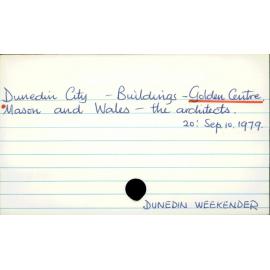 Dunedin City - Buildings - Golden Centre
Mason and Wales - the architects.
20: Sep. 10. 1979.
DUNEDIN WEEKENDER